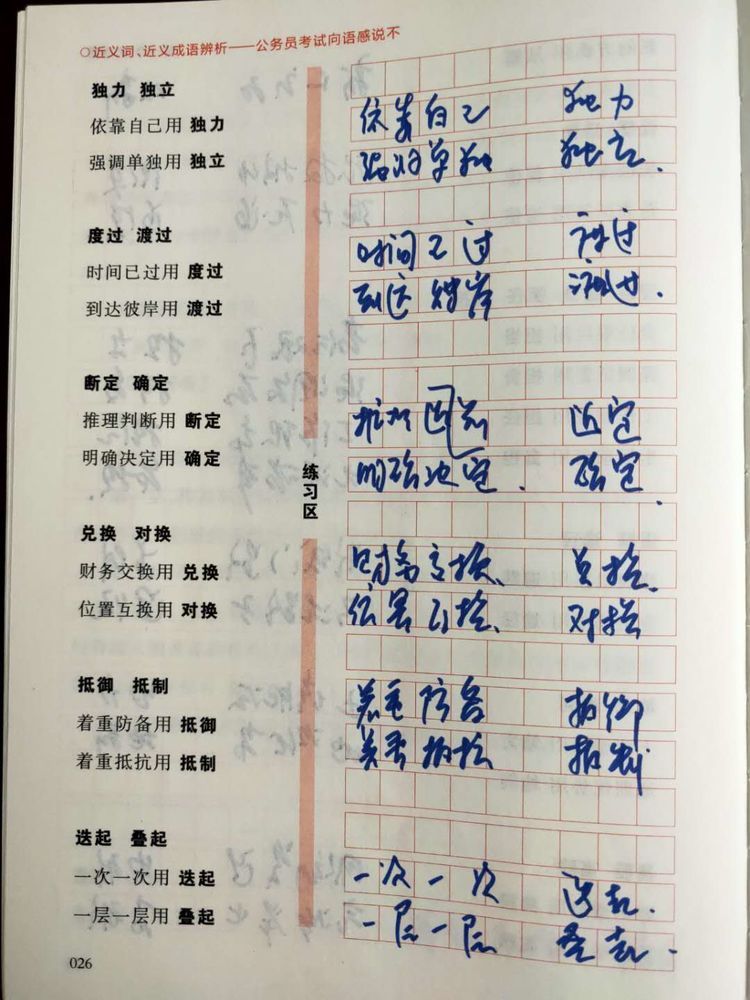 ○近义词、近义成语辨析——公务员考试向语感说不
独力 独立
依靠自己用 独力
强调单独用 独立
度过 渡过
时间已过用 度过
到达彼岸用 渡过
断定 确定
推理判断用 断定
明确决定用 确定
兑换 对换
财务交换用 兑换
位置互换用 对换
抵御 抵制
着重防备用 抵御
着重抵抗用 抵制
迭起 叠起
一次一次用 迭起
一层一层用 叠起
练习区
依靠自己 独力
强调单独 独立.
时间已过 度过
到达彼岸 渡过.
推理判断 断定
明确决定. 确定.
财务交换、 兑换.
位置互换、 对换
着重防备 抵御
着重抵抗 抵制
一次一次 迭起.
一层一层 叠起.
026